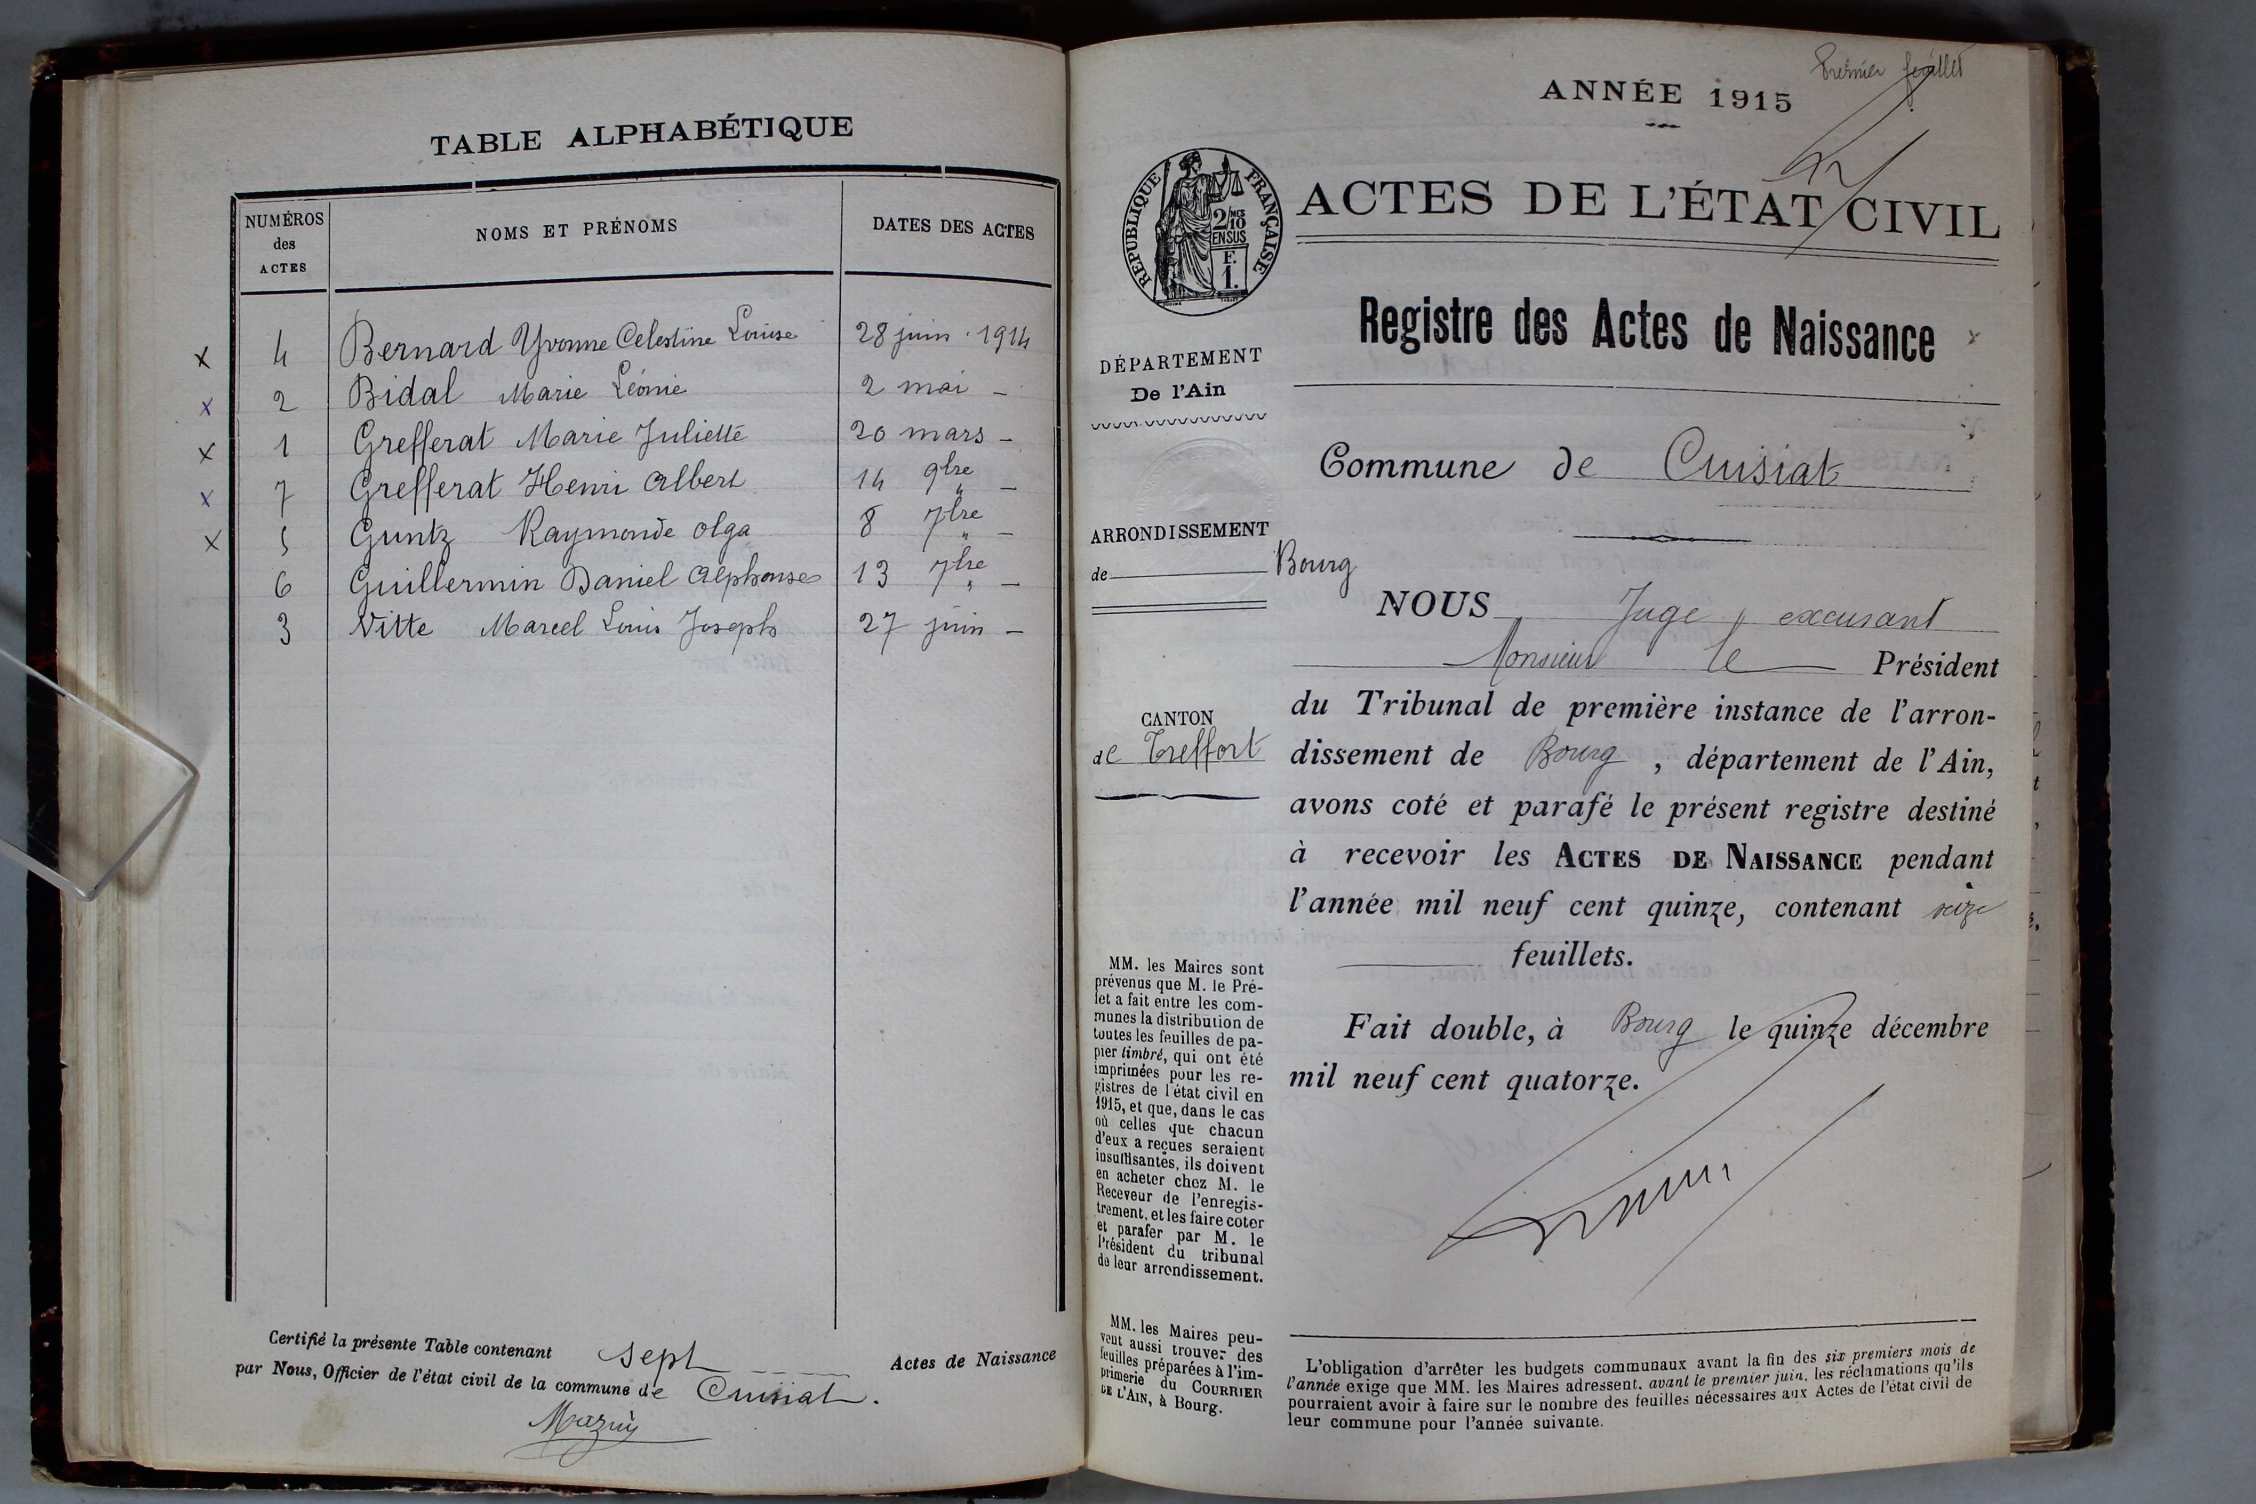 TABLE ALPHABÉTIQUE
NUMÉROS des ACTES NOMS ET PRÉNOMS DATES DES ACTES
x 4 Bernard Yvonne Celestine Louise 28 juin 1914
x 2 Bidal Marie Léonie 2 mai –
x 1 Grefferat Marie Juliette 20 mars –
x 7 Grefferat Henri Albert 14 9bre –
x 5 Guntz Raymonde Olga 8 7bre –
6 Guillermin Daniel Alphonse 13 7bre –
3 Vitte Marcel Louis Joseph 27 juin –
Certifié la présente Table contenant sept Actes de Naissance
par Nous, Officier de l'état civil de la commune de Cuisiat.
Mazuy
Premier feuillet
ANNÉE 1915
RÉPUBLIQUE FRANÇAISE
2/10
EN SUS
F.
1.
ACTES DE L'ÉTAT CIVIL
Registre des Actes de Naissance
DÉPARTEMENT
De l'Ain
Commune de Cuisiat
ARRONDISSEMENT
de Bourg
CANTON
de Treffort
NOUS Juge excusant
Monsieur le Président
du Tribunal de première instance de l'arron-
dissement de Bourg, département de l'Ain,
avons coté et parafé le présent registre destiné
à recevoir les ACTES DE NAISSANCE pendant
l'année mil neuf cent quinze, contenant seize
feuillets.
Fait double, à Bourg le quinze décembre
mil neuf cent quatorze.
MM. les Maires sont
prévenus que M. le Pré-
fet a fait entre les com-
munes la distribution de
toutes les feuilles de pa-
pier timbré, qui ont été
imprimées pour les re-
gistres de l'état civil en
1915, et que, dans le cas
où celles que chacun
d'eux a reçues seraient
insuffisantes, ils doivent
en acheter chez M. le
Receveur de l'enregis-
trement, et les faire coter
et parafer par M. le
Président du tribunal
de leur arrondissement.
MM. les Maires peu-
vent aussi trouver des
feuilles préparées à l'im-
primerie du COURRIER
DE L'AIN, à Bourg.
L'obligation d'arrêter les budgets communaux avant la fin des six premiers mois de
l'année exige que MM. les Maires adressent, avant le premier juin, les réclamations qu'ils
pourraient avoir à faire sur le nombre des feuilles nécessaires aux Actes de l'état civil de
leur commune pour l'année suivante.